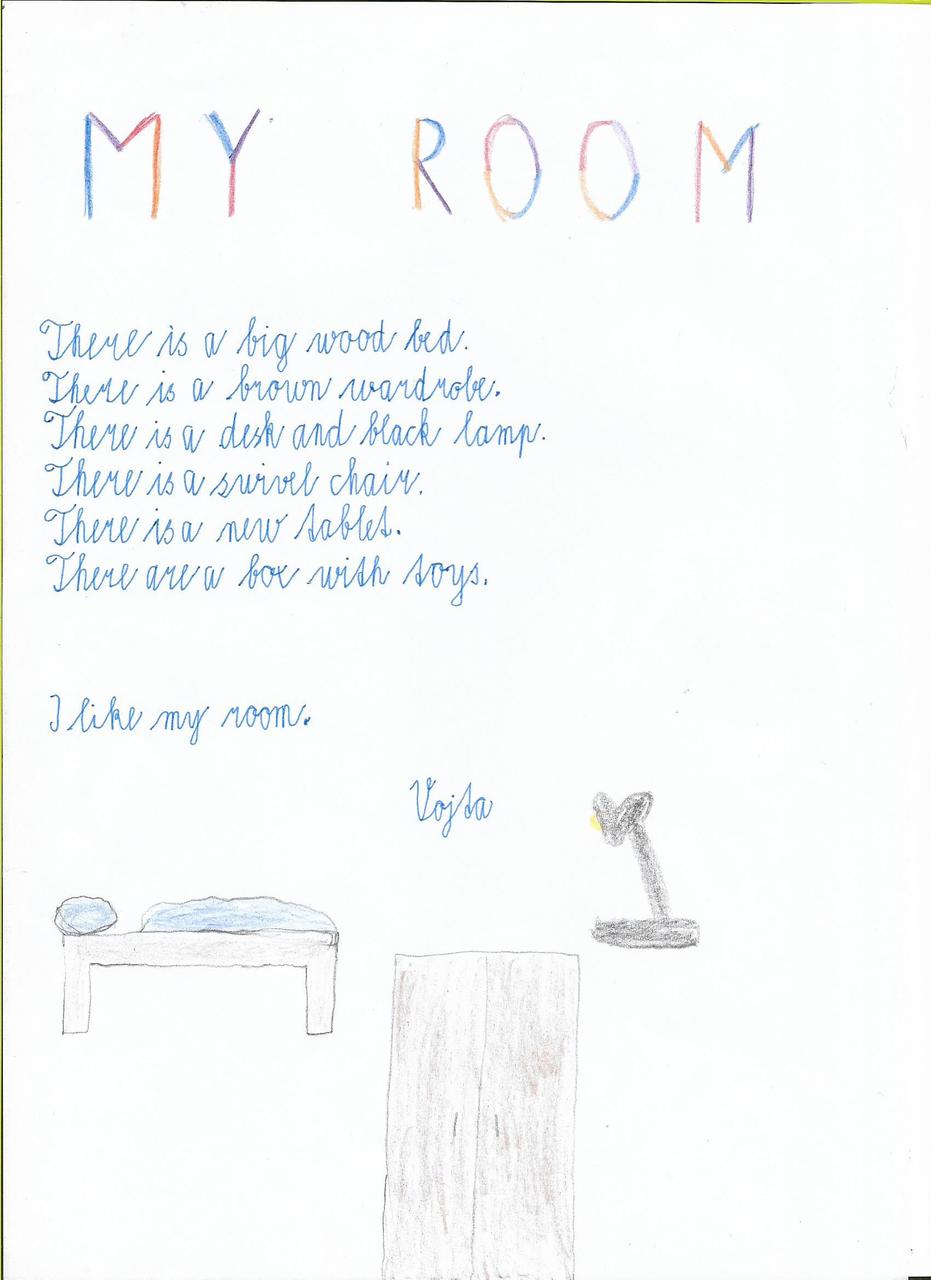 MY ROOM
There is a big wood bed.
There is a brown wardrobe.
There is a desk and black lamp.
There is a swivel chair.
There is a new tablet.
There are a box with toys.
I like my room.
Vojta